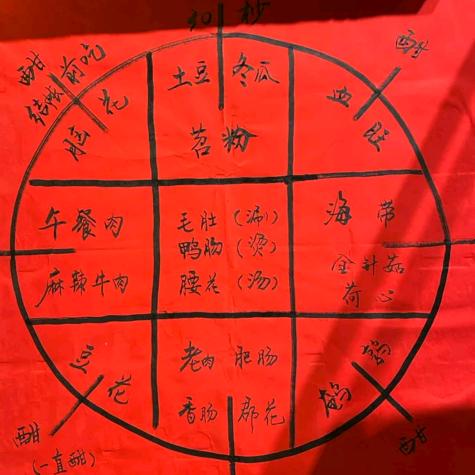 30 秒
酣 前吃
结帐
脑 花
土豆 冬瓜
苕 粉
酣
血 旺
午餐肉
麻辣牛肉
毛肚 (涮)
鸭肠 (烫)
腰花 (汤)
海 带
金针菇
荷心
豆 花
老肉 肥肠
香肠 郡花
鹌 鹑
酣
(一直酣)
酣